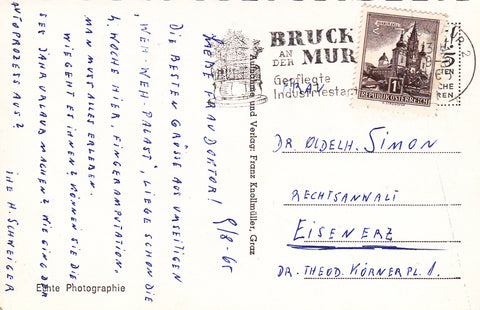 Liebe Frau Doktor! 9/8-65
Die besten Grüsse aus umseitigen
"Weh-Weh-Palast", liege schon die
4. Woche hier, Fingeramputation,
man muss alles erleben.
Wie geht es Ihnen? Können Sie die-
ses Jahr Urlaub machen? Wie ging der
Autoprozess aus?
Ihr H. Schweiger
Echte Photographie
Aufnahme und Verlag: Franz Knollmüller, Graz
BRUCK
AN DER MUR
Gepflegte
Industriestadt
1S
REPUBLIK ÖSTERREICH
Frau
Dr. Oldelh. Simon
Rechtsanwalt
Eisenerz
Dr. Theod. Körnerpl. 1.